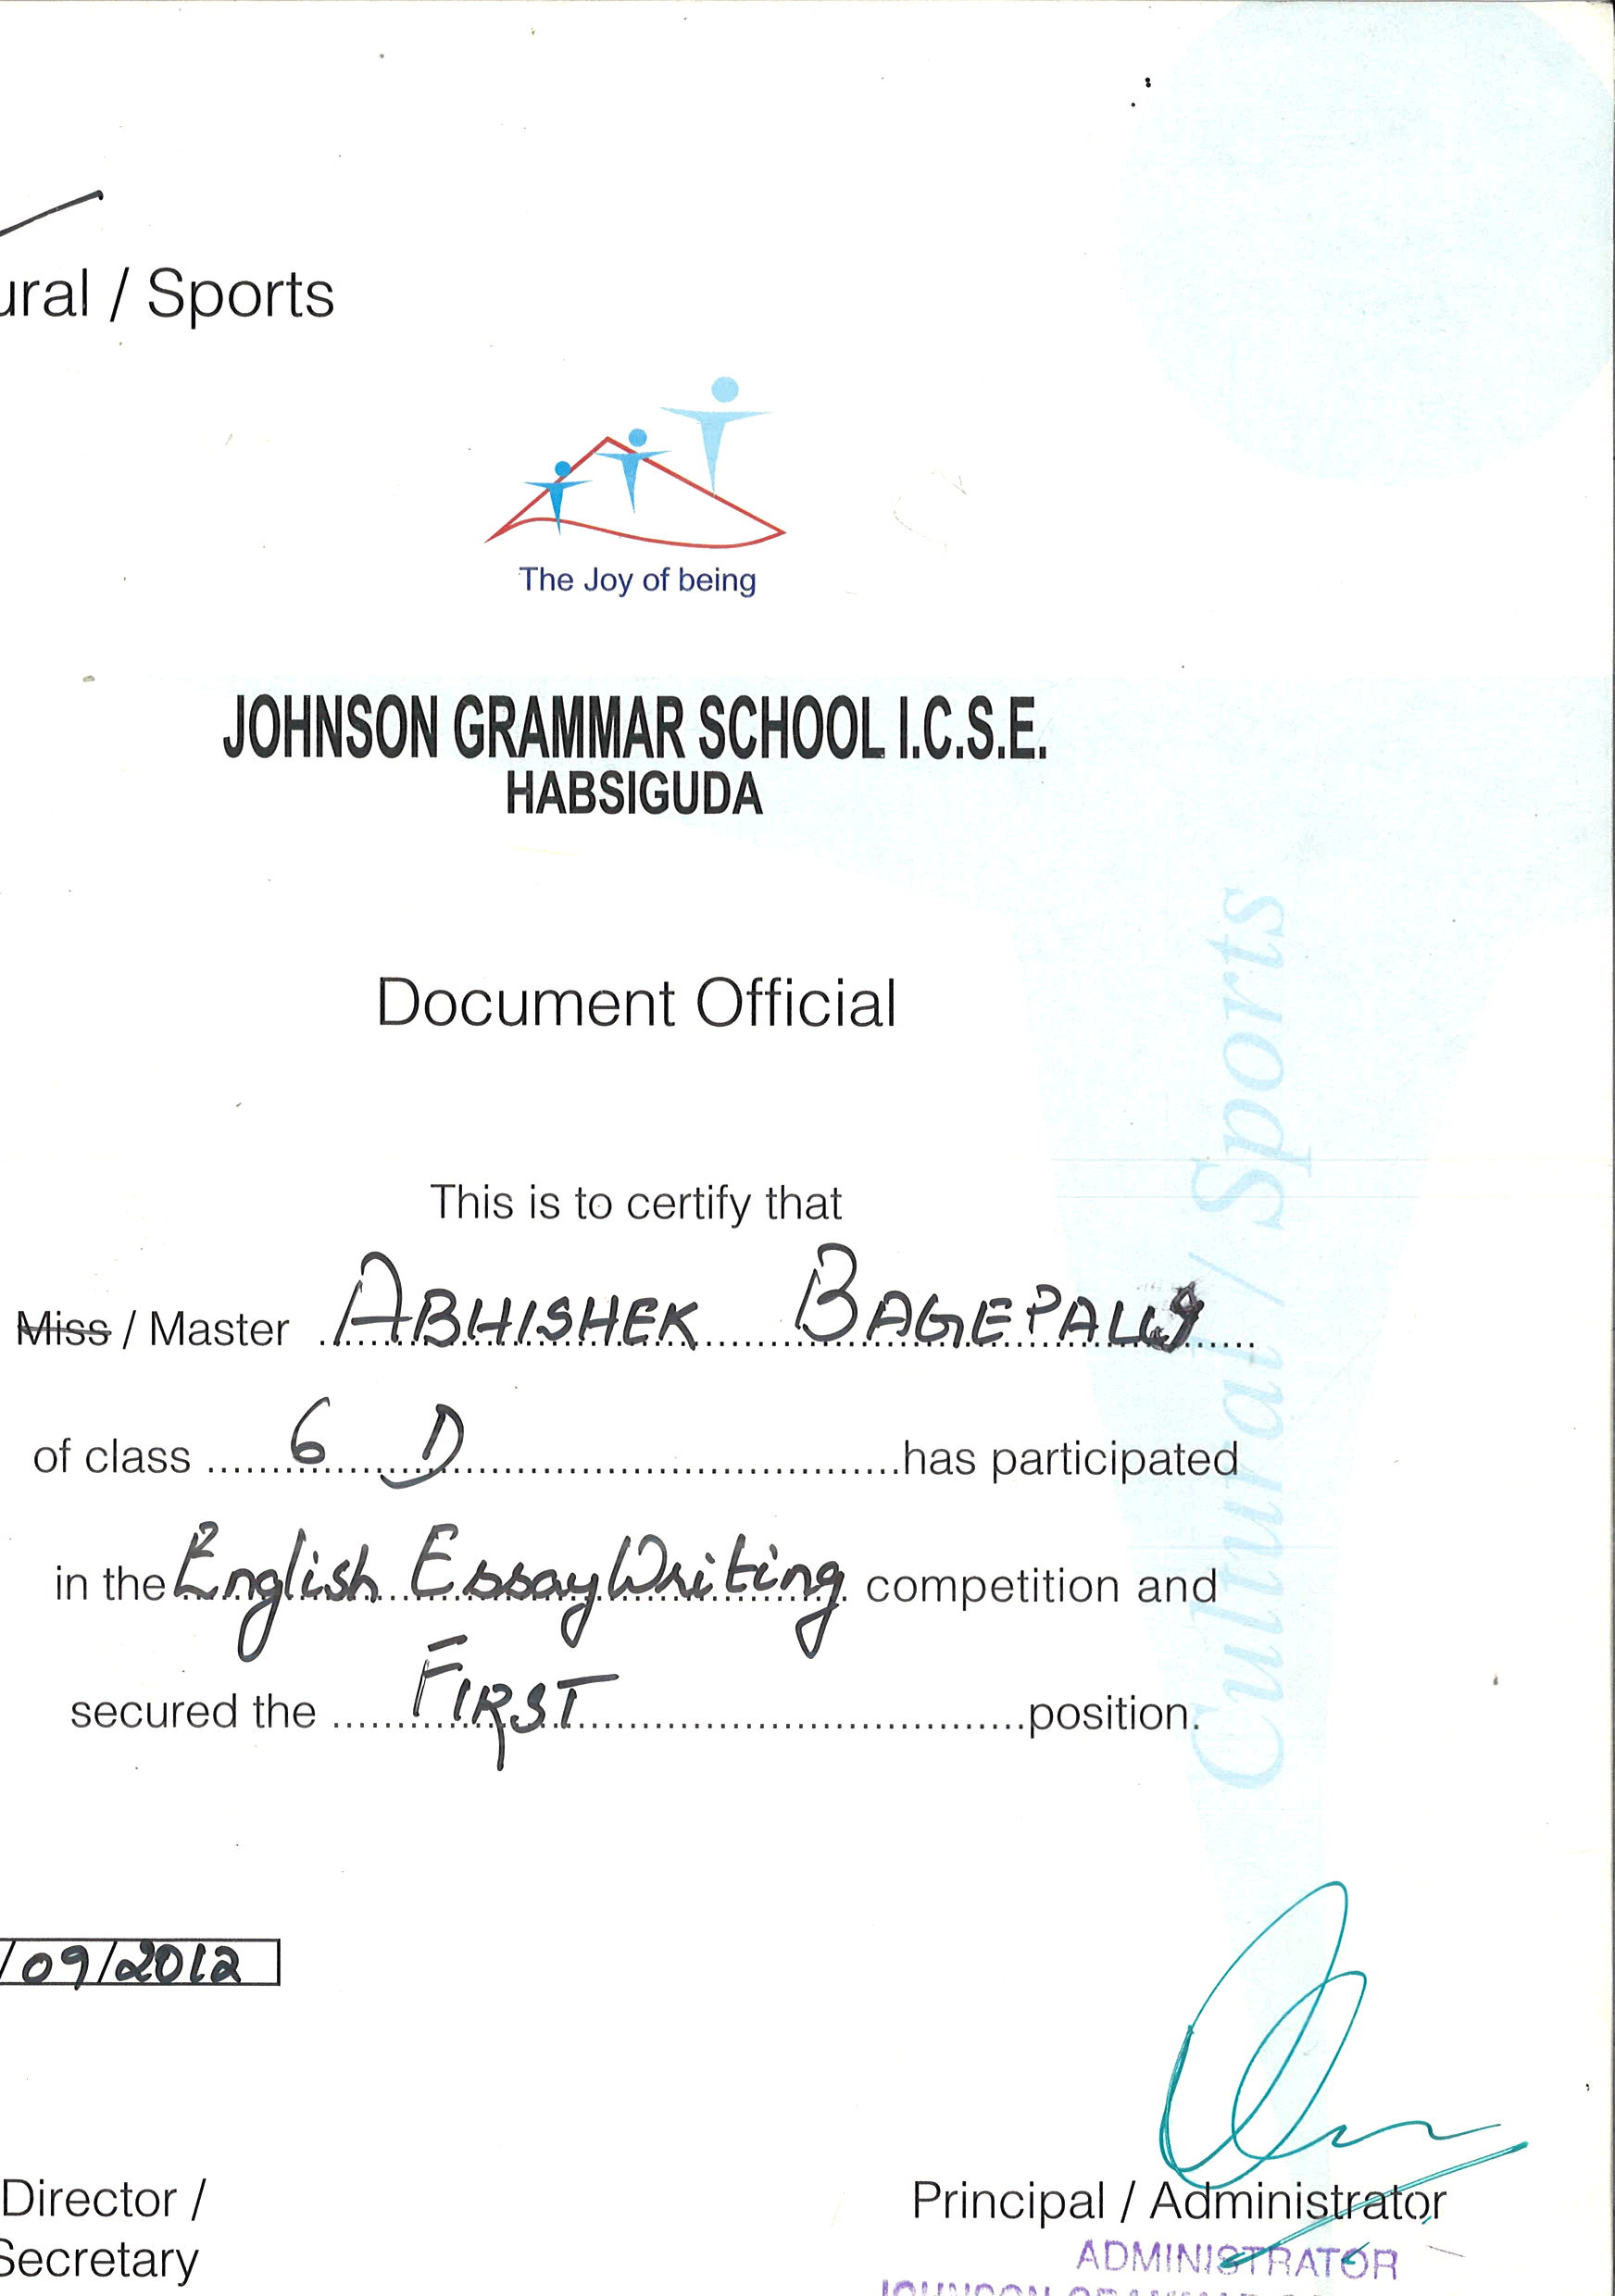 ural / Sports
The Joy of being
JOHNSON GRAMMAR SCHOOL I.C.S.E.
HABSIGUDA
Document Official
This is to certify that
Miss / Master ABHISHEK BAGEPALLY
of class 6 D has participated
in the English Essay Writing competition and
secured the FIRST position.
Cultural / Sports
/09/2012
Director /
Secretary
Principal / Administrator
ADMINISTRATOR